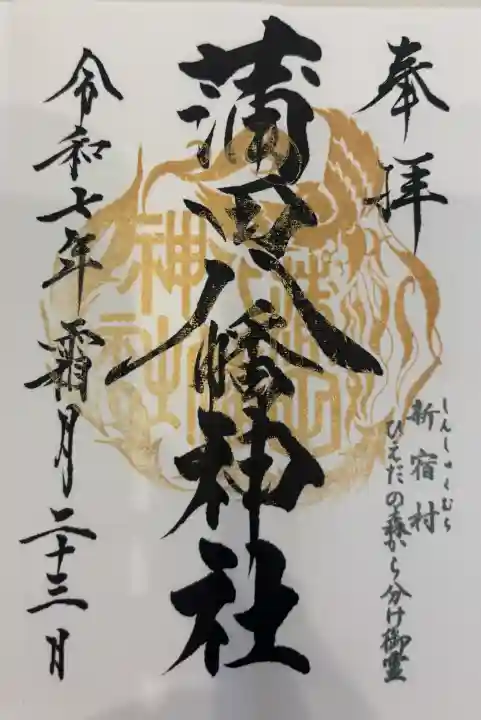 奉拝
しんしゅくむら
新宿村
ひえだの森から分け御霊
蒲田八幡神社
令和七年霜月二十三日